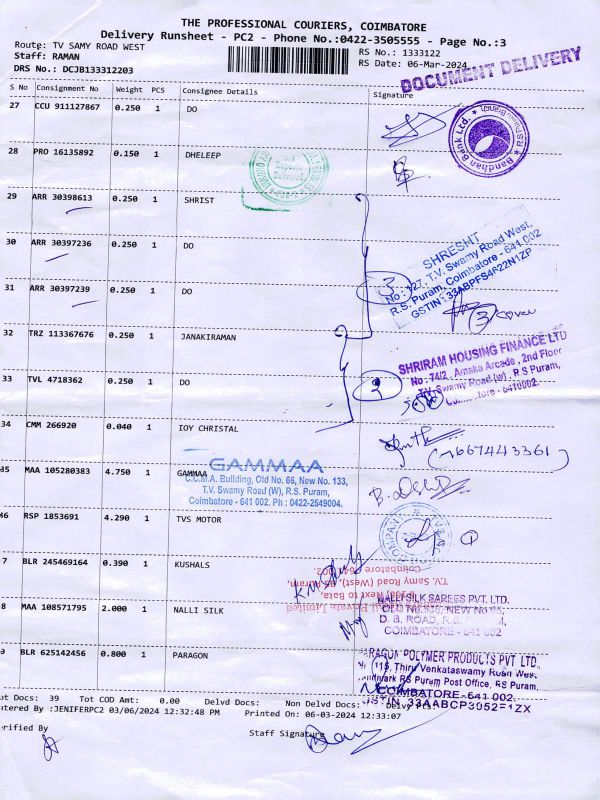 THE PROFESSIONAL COURIERS, COIMBATORE
Delivery Runsheet - PC2 - Phone No.:0422-3505555 - Page No.:3
Route: TV SAMY ROAD WEST
RS No.: 1333122
Staff: RAMAN
RS Date: 06-Mar-2024
DRS No.: DCJB133312203
DOCUMENT DELIVERY
S No Consignment No Weight PCS Consignee Details Signature
27 CCU 911127867 0.250 1 DO
Bandhan Bank Ltd.
28 PRO 16135892 0.150 1 DHELEEP
29 ARR 30398613 0.250 1 SHRIST
30 ARR 30397236 0.250 1 DO
SHRESHT
No : 127, T.V. Swamy Road West,
R.S. Puram, Coimbatore - 641 002
GSTIN : 33ABPFS4F22N1ZP
31 ARR 30397239 0.250 1 DO
3
3 cover
32 TRZ 113367676 0.250 1 JANAKIRAMAN
SHRIRAM HOUSING FINANCE LTD
No : 74/2, Amaka Arcade, 2nd Floor
T.V. Swamy Road (w), R.S Puram,
Coimbatore - 6410002.
33 TVL 4718362 0.250 1 DO
34 CMM 266920 0.040 1 IOY CHRISTAL
(7667443361)
35 MAA 105280383 4.750 1 GAMMAA
GAMMAA
C.C.M.A. Building, Old No. 66, New No. 133,
T.V. Swamy Road (W), R.S. Puram,
Coimbatore - 641 002. Ph : 0422-2549004.
36 RSP 1853691 4.290 1 TVS MOTOR
7 BLR 245469164 0.390 1 KUSHALS
Private Limited
Next to Bata,
T.V. Samy Road (West), RS Puram,
Coimbatore - 641 002.
8 MAA 108571795 2.000 1 NALLI SILK
NALLI SILK SAREES PVT. LTD.
D. B. ROAD, R.S. PURAM,
COIMBATORE - 641 002
9 BLR 625142456 0.800 1 PARAGON
PARAGON POLYMER PRODUCTS PVT LTD.
115, Thiru Venkataswamy Road West,
Landmark RS Puram Post Office, RS Puram,
COIMBATORE-641 002
GSTIN 33AABCP3052E1ZX
ot Docs: 39 Tot COD Amt: 0.00 Delvd Docs: Non Delvd Docs: Delvy Pts:
ntered By :JENIFERPC2 03/06/2024 12:32:48 PM Printed On: 06-03-2024 12:33:07
erified By
Staff Signature